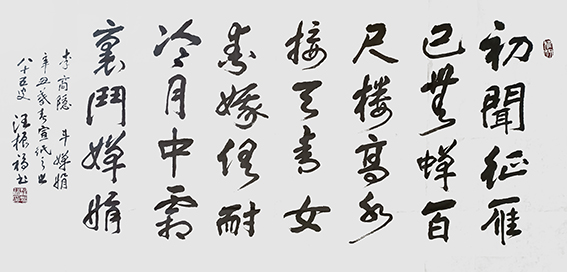 初聞征雁
已無蟬百
尺樓高水
接天青女
素娥俱耐
冷月中霜
裏鬥嬋娟
李商隐 斗嬋娟
辛丑歲春宣
八十五叟 汪振福书